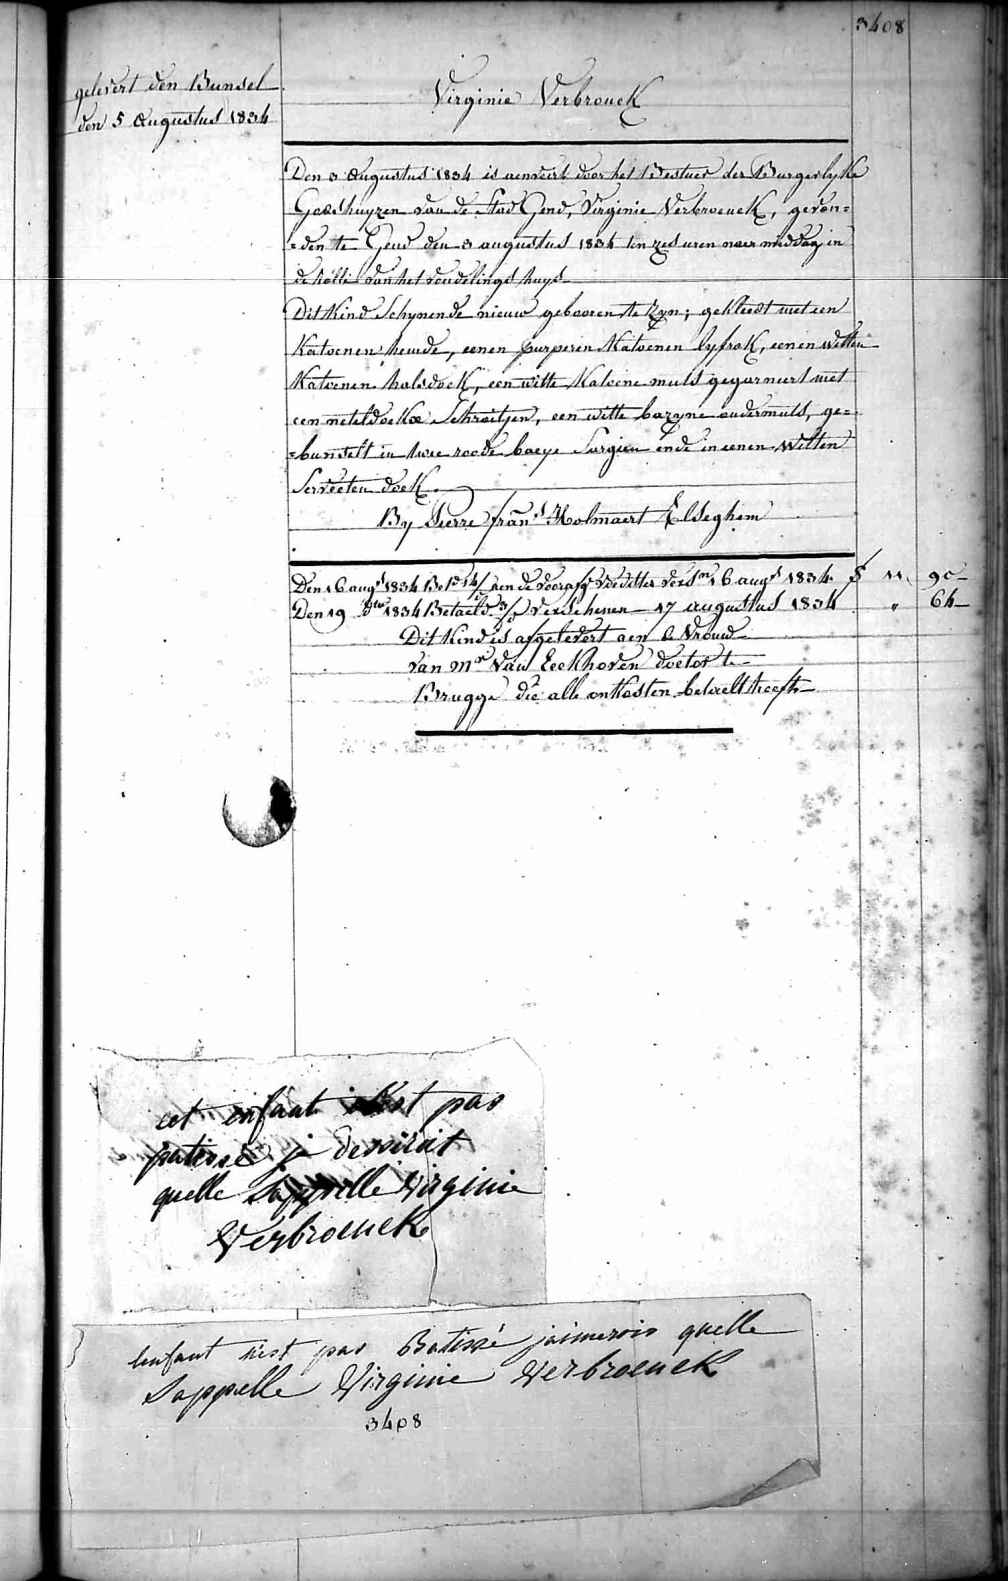 3408
gelevert den Bunsel
den 5 Augustus 1834
Virginie Verbrouck
Den 3 Augustus 1834 is aenveirt door het Bestuer der Burgerlyke
Godshuyzen van de Stad Gend, Virginie Verbroeuck, gevon=
=den te Gend den 3 augustus 1834 ten zes uren naer middag in
de rolle van het vondelings huys
Dit Kind Schynende nieuw gebooren te zyn; gekleedt met een
Katoenen hemde, eenen purperen Katoenen lyfrok, eenen witten
Katoenen halsdoek, een witte Katoene muts gegarneert met
een neteldoekx Schroitjen, een witte bazyne ondermuts, ge=
=bunselt in twee roode baeye Surgien ende in eenen witten
Servieten doek.
By Pierre frans Holmaert Elseghem
Den 16 augs 1834 Bet 14/ aen de voorafge Verschm 16 augs 1834 f 11 90
Den 19 dto 1834 Betaeld 3/ verschenen 17 augustus 1834 " 64
Dit Kind is afgelevert aen de Vrouw
van Mr Van Eeckhoven doctor te
Brugge die alle onkosten betaelt heeft
cet enfant n'est pas
patissé je desirait
quelle Sappelle Virginie
Verbroeuck
lenfant n'est pas Batissé jaimerois quelle
Sappelle Virginie Verbroeuck
3408